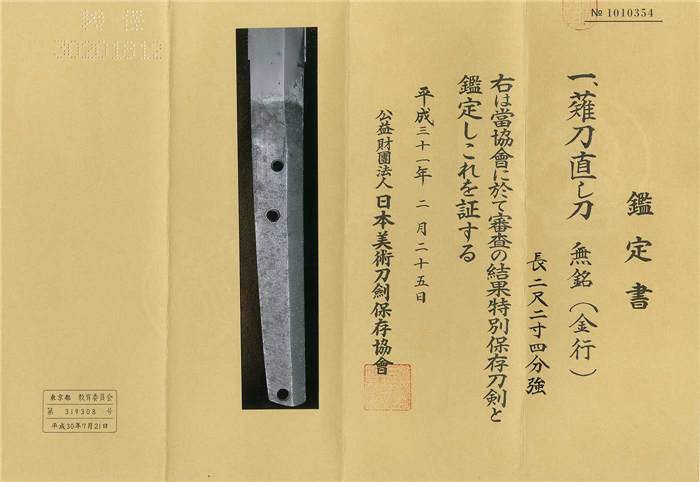 № 1010354
鑑定書
一、薙刀直し刀 無銘(金行)
長二尺二寸四分強
右は當協會に於て審査の結果特別保存刀剣と
鑑定しこれを証する
平成三十一年 二月二十五日
公益財團法人 日本美術刀劍保存協會
東京都 教育委員会
第 319308 号
平成30年7月21日